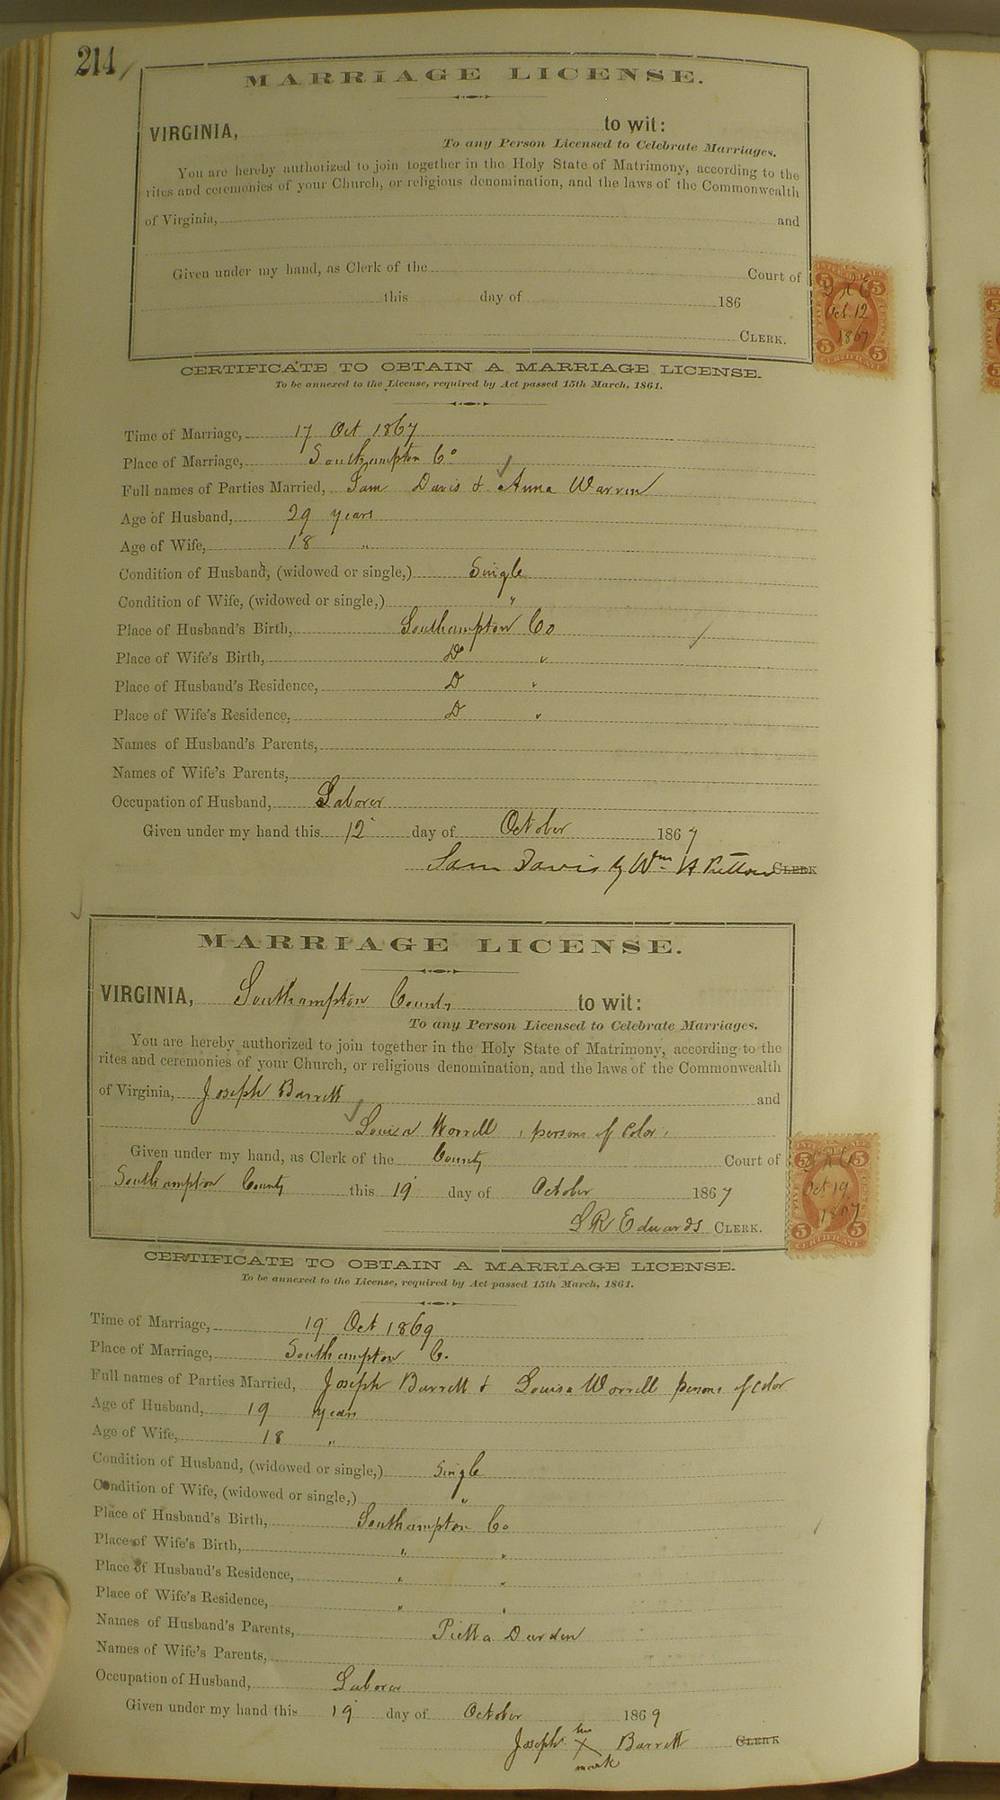 214
MARRIAGE LICENSE.
VIRGINIA, to wit:
To any Person Licensed to Celebrate Marriages.
You are hereby authorized to join together in the Holy State of Matrimony, according to the
rites and ceremonies of your Church, or religious denomination, and the laws of the Commonwealth
of Virginia, and
Given under my hand, as Clerk of the Court of
this day of 186
CLERK.
5 5
Oct. 12
1867
5 5
CERTIFICATE
CERTIFICATE TO OBTAIN A MARRIAGE LICENSE.
To be annexed to the License, required by Act passed 15th March, 1861.
Time of Marriage, 17 Oct 1867
Place of Marriage, Southampton Co
Full names of Parties Married, Sam Davis & Anna Warren
Age of Husband, 29 years
Age of Wife, 18 "
Condition of Husband, (widowed or single,) Single
Condition of Wife, (widowed or single,) "
Place of Husband's Birth, Southampton Co
Place of Wife's Birth, Do "
Place of Husband's Residence, D "
Place of Wife's Residence, D "
Names of Husband's Parents,
Names of Wife's Parents,
Occupation of Husband, Laborer
Given under my hand this 12 day of October 1867
Sam Davis by Wm H CLERK
MARRIAGE LICENSE.
VIRGINIA, Southampton County to wit:
To any Person Licensed to Celebrate Marriages.
You are hereby authorized to join together in the Holy State of Matrimony, according to the
rites and ceremonies of your Church, or religious denomination, and the laws of the Commonwealth
of Virginia, Joseph Barrett and
Louisa Worrell, persons of Color,
Given under my hand, as Clerk of the County Court of
Southampton County this 19 day of October 1867
L R Edwards CLERK.
5 5
Oct 19
1867
5 5
CERTIFICATE
CERTIFICATE TO OBTAIN A MARRIAGE LICENSE.
To be annexed to the License, required by Act passed 15th March, 1861.
Time of Marriage, 19 Oct 1869
Place of Marriage, Southampton C.
Full names of Parties Married, Joseph Barrett & Louisa Worrell persons of color
Age of Husband, 19 years
Age of Wife, 18 "
Condition of Husband, (widowed or single,) Single
Condition of Wife, (widowed or single,) "
Place of Husband's Birth, Southampton Co
Place of Wife's Birth, " "
Place of Husband's Residence, " "
Place of Wife's Residence, " "
Names of Husband's Parents, Durden
Names of Wife's Parents,
Occupation of Husband, Laborer
Given under my hand this 19 day of October 1869
his
Joseph X Barrett CLERK
mark